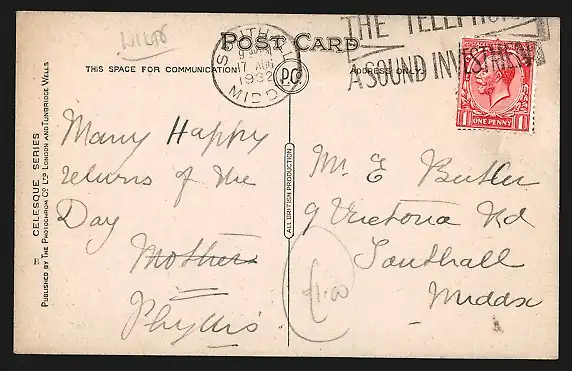 WILTS
POST CARD
THIS SPACE FOR COMMUNICATION
ADDRESS ONLY
SOUTHALL
17 AUG
1932
MIDDX
P.Co
THE TELEPHONE
A SOUND INVESTMENT
ONE PENNY
1 1
CELESQUE SERIES
PUBLISHED BY THE PHOTOCHROM CO LTD LONDON AND TUNBRIDGE WELLS
ALL BRITISH PRODUCTION
Many Happy
returns of the
Day
Mother
Phyllis.
£1.00
Mr. E Butler
9 Victoria Rd
Southall
Middx